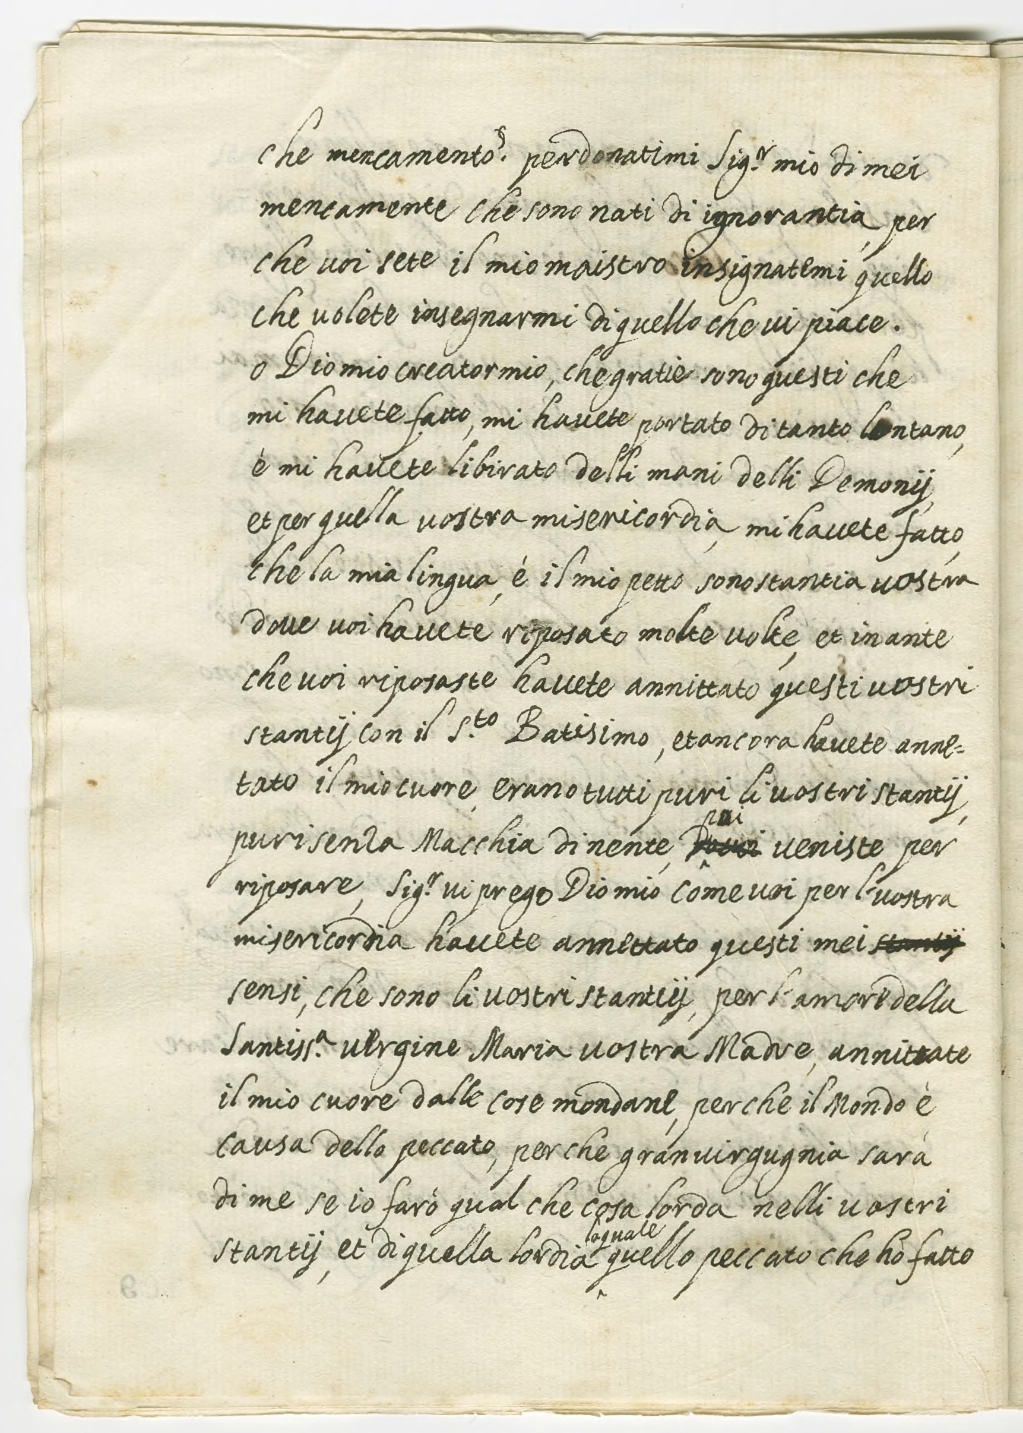 che mencamento? perdonatimi Sig.r mio di mei
mencamente che sono nati di ignorantia, per
che voi sete il mio maistro insignatemi quello
che volete insegnarmi di quello che vi piace.
o Dio mio creator mio, che gratie sono questi che
mi havete fatto, mi havete portato di tanto lontano,
è mi havete libirato delli mani delli Demonij,
et per quella vostra misericordia, mi havete fatto,
che la mia lingua, è il mio petto sono stantia vostra
dove voi havete riposato molte volte, et inante
che voi riposaste havete annittato questi vostri
stantij con il S.to Batisimo, et ancora havete anne-
tato il mio cuore, erano tutti puri li vostri stantij,
puri senza Macchia di nente, poi veniste per
riposare, Sig.r vi prego Dio mio, come voi per l' vostra
misericordia havete annettato questi mei stantij
sensi, che sono li vostri stantij, per l' amore della
Santiss.a vergine Maria vostra Madre, annittate
il mio cuore dalle cose mondane, perche il Mondo è
causa dello peccato, perche gran virgugnia sarà
di me se io farò qual che cosa lorda nelli vostri
stantij, et di quella lordia laquale quello peccato che ho fatto